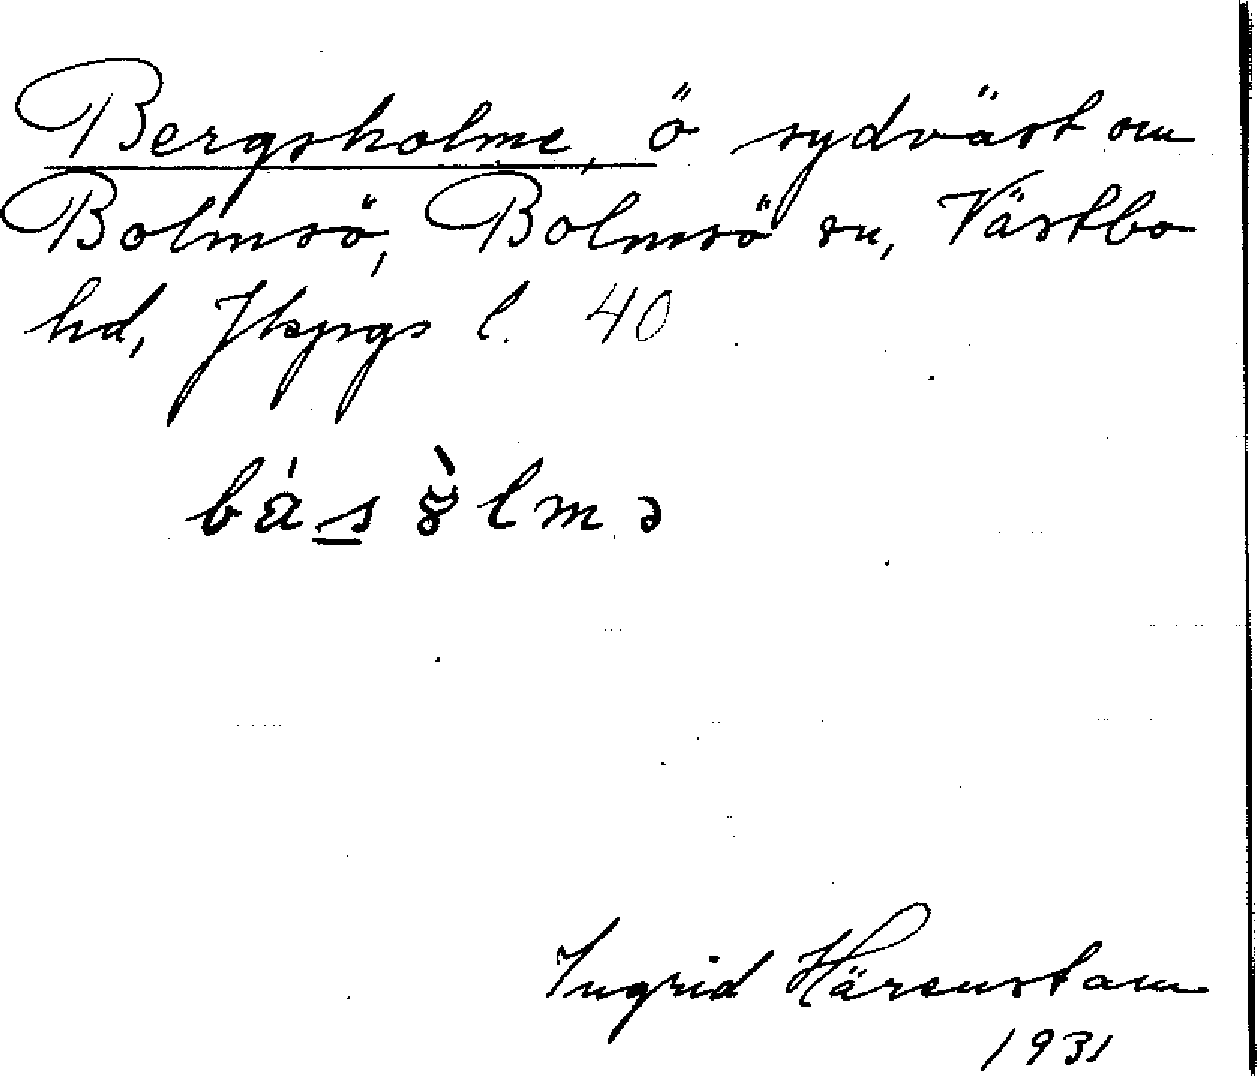 Bergsholme, ö sydväst om
Bolmsö, Bolmsö sn, Västbo
hd, Jkpgs l. 40
Ingrid Härenstam
1931